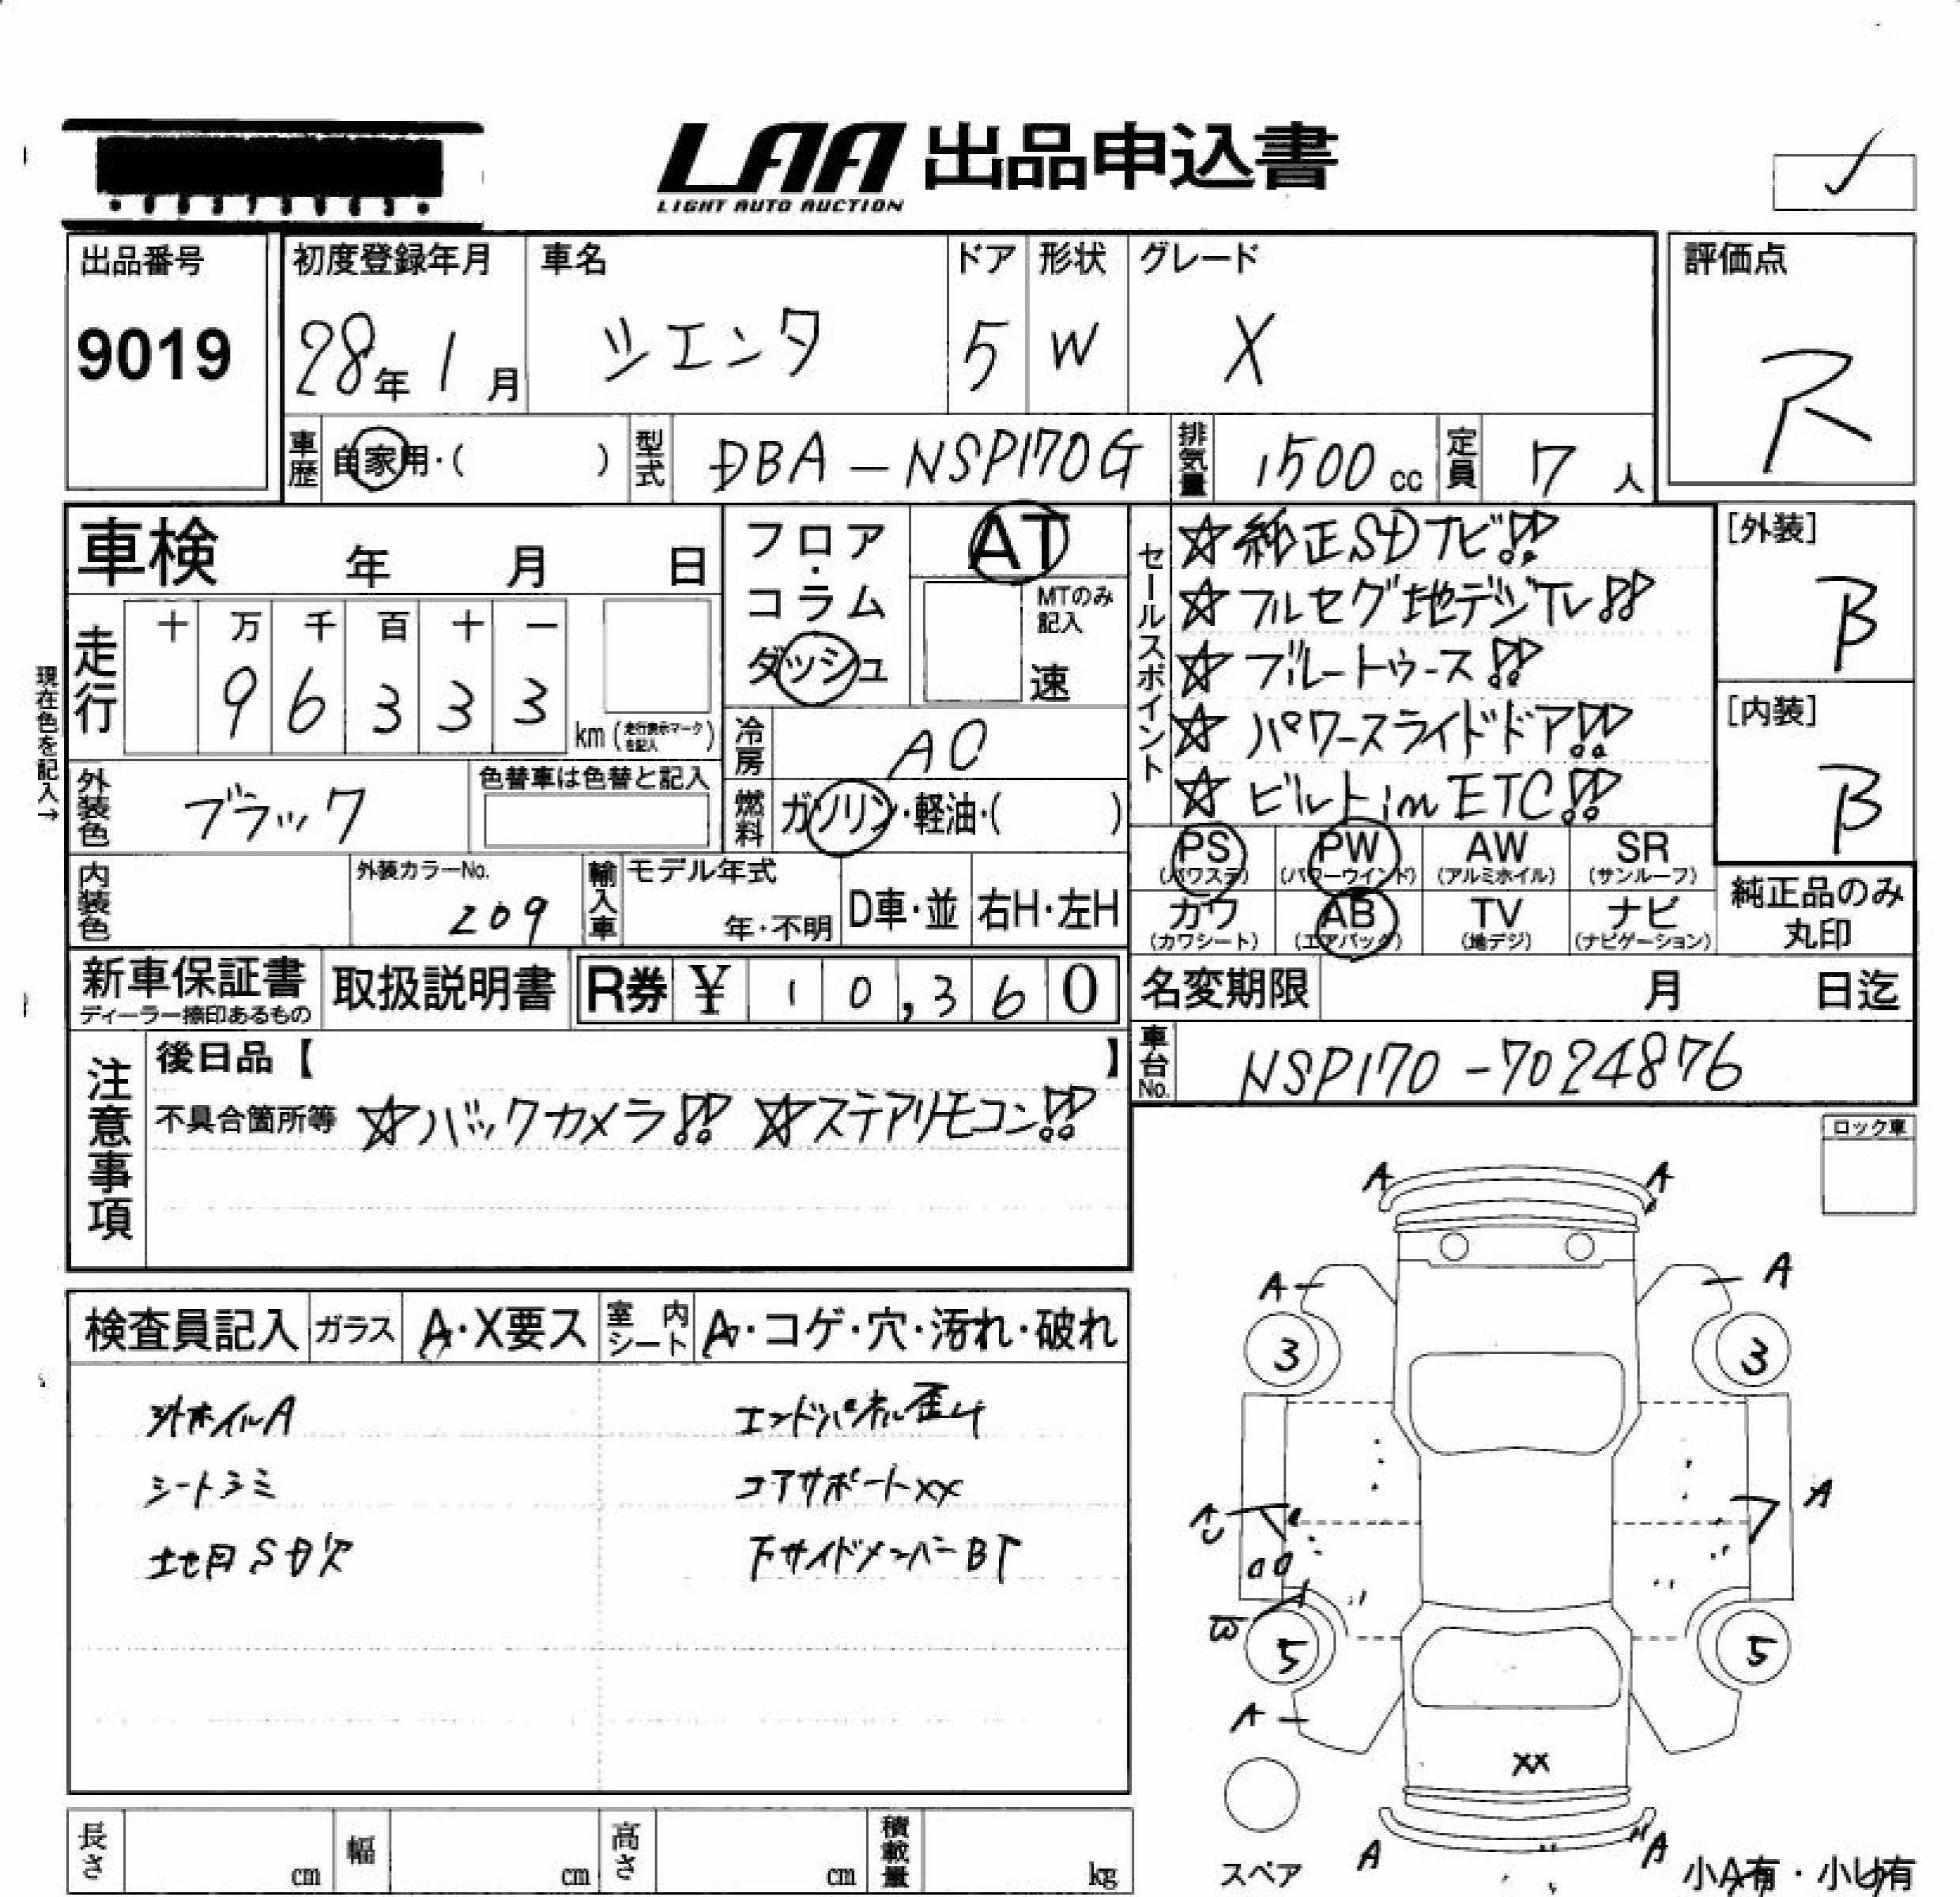 LAA 出品申込書
LIGHT AUTO AUCTION
✓
出品番号 初度登録年月 車名 ドア 形状 グレード 評価点
9019 28年 1月 シエンタ 5 W X R
車歴 自家用・( ) 型式 DBA-NSP170G 排気量 1500cc 定員 7人
車検 年 月 日
フロア・コラム ダッシュ AT
MTのみ記入 速
走行 十 万 千 百 十 一
9 6 3 3 3 km (走行表示マークを記入)
現在色を記入→
冷房 AC
外装色 ブラック 色替車は色替と記入
燃料 ガソリン・軽油・( )
内装色 外装カラーNo. 209
輸入車 モデル年式 年・不明 D車・並 右H・左H
セールスポイント
☆純正SDナビ!!
☆フルセグ地デジTV!!
☆ブルートゥース!!
☆パワースライドドア!!
☆ビルトinETC!!
[外装] B
[内装] B
PS (パワステ) PW (パワーウインド) AW (アルミホイル) SR (サンルーフ)
カワ (カワシート) AB (エアバッグ) TV (地デジ) ナビ (ナビゲーション)
純正品のみ丸印
新車保証書 ディーラー捺印あるもの 取扱説明書 R券 ¥ 10,360
名変期限 月 日迄
車台No. NSP170-7024876
注意事項
後日品【 】
不具合箇所等 ☆バックカメラ!! ☆ステアリモコン!!
ロック車
検査員記入 ガラス A・X要ス 室内シート A・コゲ・穴・汚れ・破れ
外ホイルA エンドパネル歪み
シートシミ コアサポートXX
下サイドメンバーBT
A A
A A
3 3
A
5 5
A
XX
A A
スペア
小A有・小U有
長さ cm 幅 cm 高さ cm 積載量 kg